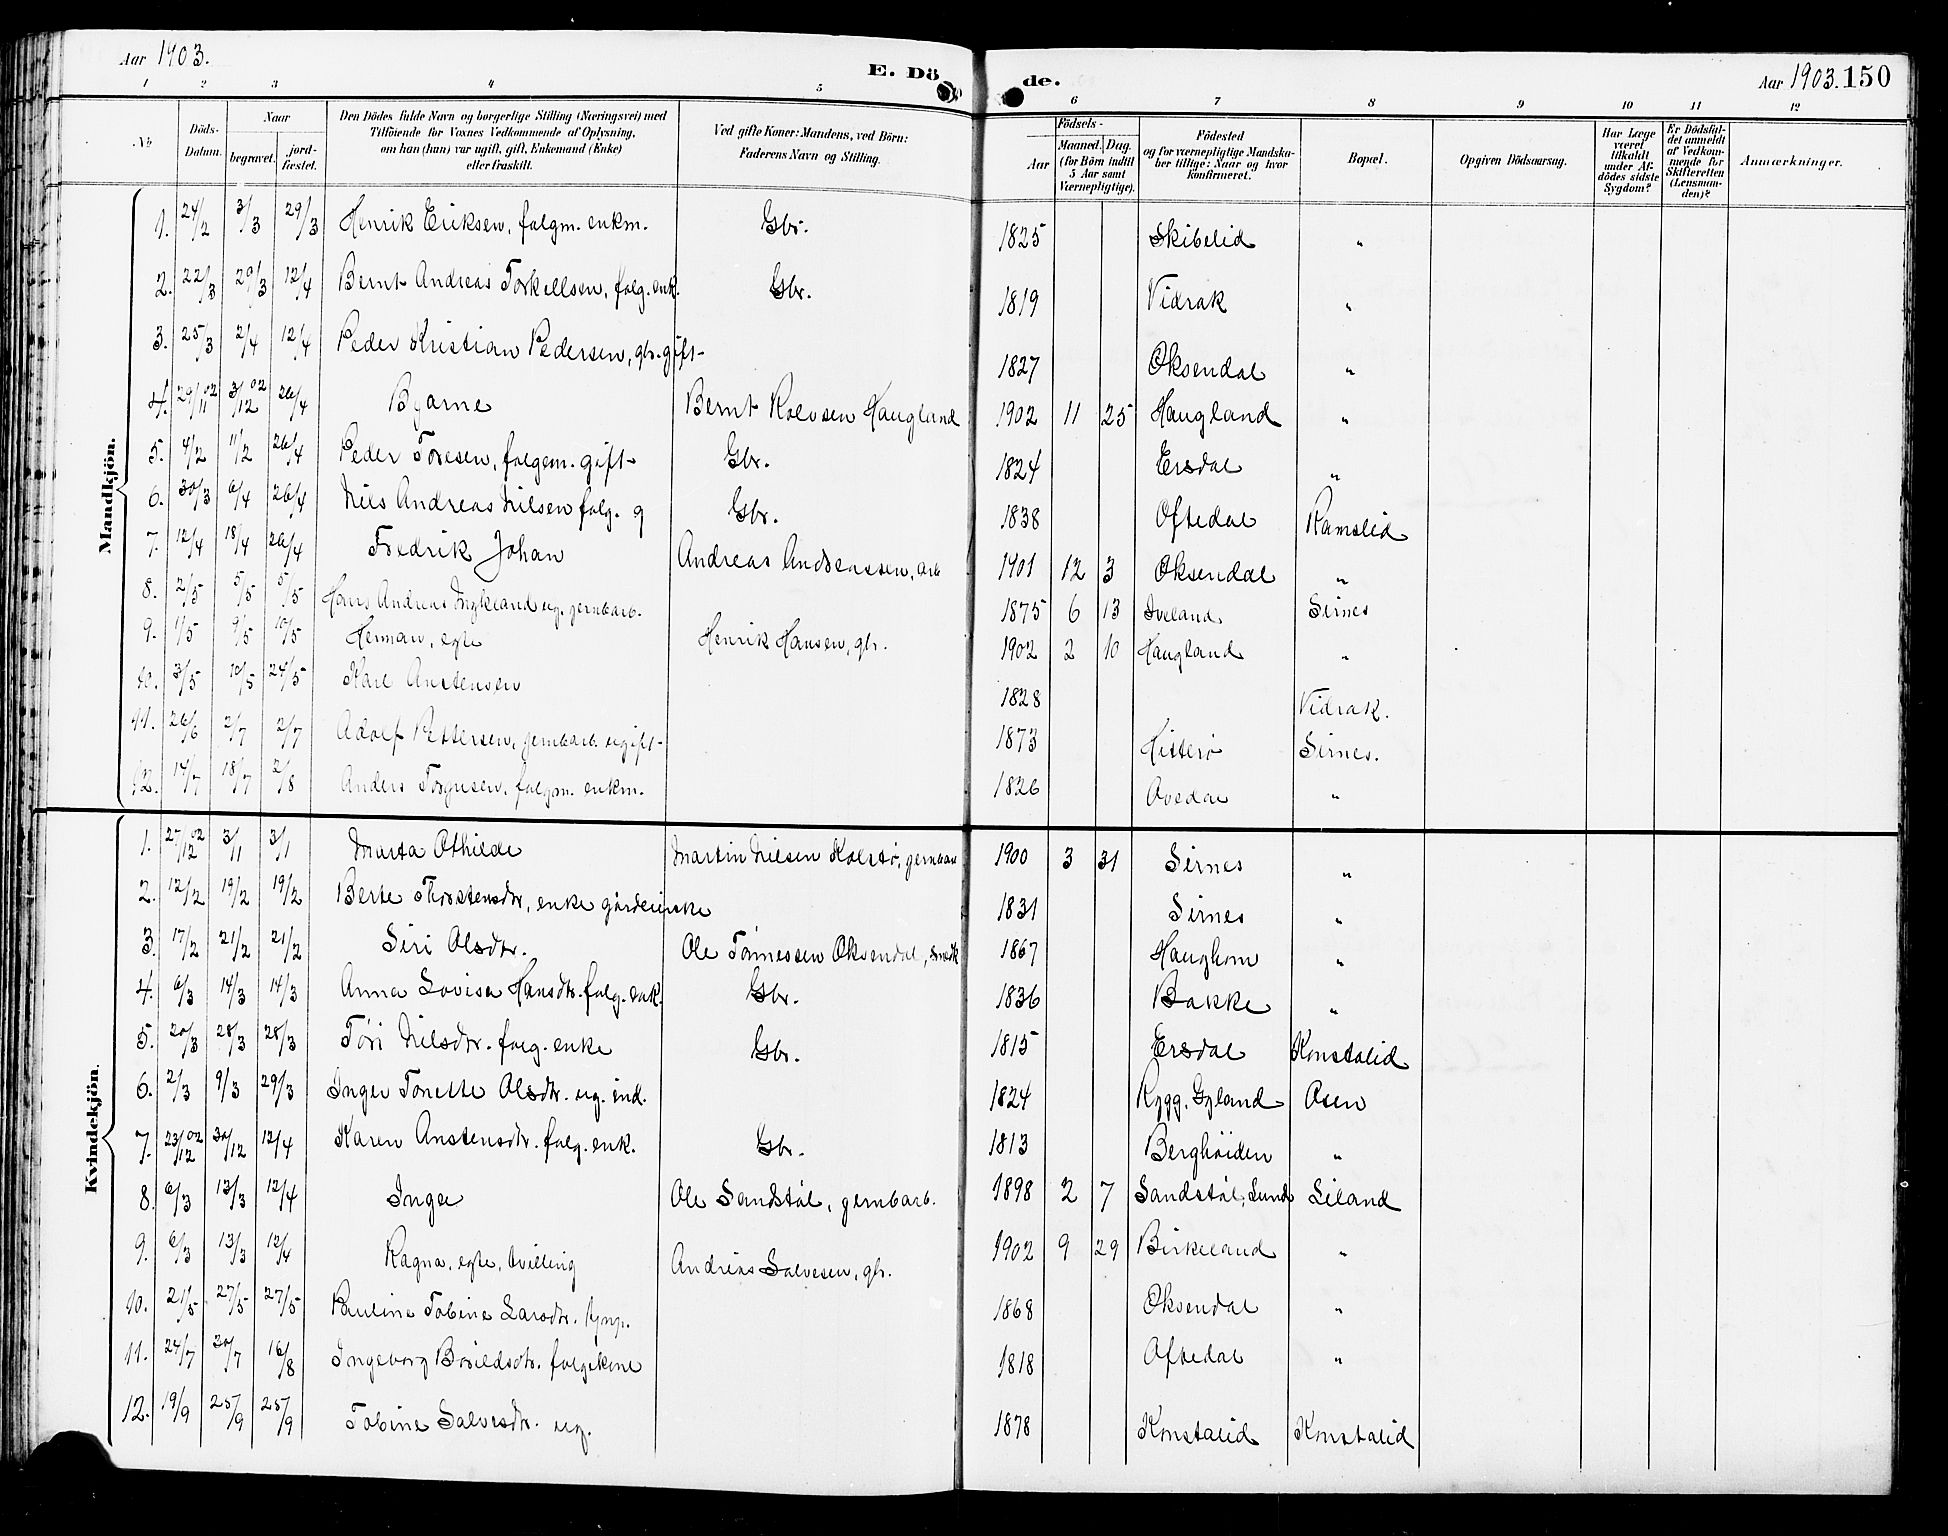 Aar 1903.
E. Döde.
Aar 1903. 150
1 2 3 4 5 6 7 8 9 10 11 12
No
Döds-Datum.
Naar
begravet.
jord-fæstet.
Den Dödes fulde Navn og borgerlige Stilling (Næringsvei) med
Tilföiende for Voxnes Vedkommende af Oplysning,
om han (hun) var ugift, gift, Enkemand (Enke)
eller fraskilt.
Ved gifte Koner: Mandens, ved Börn:
Faderens Navn og Stilling.
Födsels-
Aar
Maaned. Dag.
(for Börn indtil
5 Aar samt
Værnepligtige).
Födested
og for værnepligtige Mandska-
ber tillige: Naar og hvor
Konfirmeret.
Bopæl.
Opgiven Dödsaarsag.
Har Læge
været
tilkaldt
under Af-
dödes sidste
Sygdom?
Er Dödsfal-
det anmeldt
af Vedkom-
mende for
Skifteretten
(Lensman-
den)?
Anmærkninger.
Mandkjön.
1. 24/2 3/3 29/3 Henrik Eriksen, folgm. enkm. Gbr. 1825 Skibelid "
2. 22/3 29/3 12/4 Bernt Andreas Torkellsen, folg. enk. Gbr. 1819 Vidrak "
3. 25/3 2/4 12/4 Peder Kristian Pedersen, gbr. gift 1827 Oksendal "
4. 29/11 02 3/12 02 26/4 Bjarne Bernt Rolvsen Haugland 1902 11 25 Haugland "
5. 4/2 11/2 26/4 Peder Toresen, folgem. gift Gbr. 1824 Ersdal "
6. 30/3 6/4 26/4 Nils Andreas Nilsen folg. g Gbr. 1838 Oftedal Ramslid
7. 12/4 18/4 26/4 Fredrik Johan Andreas Andreassen, arb 1901 12 3 Oksendal "
8. 2/5 5/5 5/5 Hans Andreas ug. jernbarb. 1875 6 13 Iveland Sirnes
9. 1/5 9/5 10/5 Herman, egte Henrik Hansen, gbr. 1902 2 10 Haugland "
10. 3/5 10/5 24/5 Karl Anstensen 1828 Vidrak.
11. 26/6 2/7 2/7 Adolf Pettersen, jernbarb. ugift 1873 Hitterö Sirnes.
12. 14/7 18/7 2/8 Anders Torgusen, folgm. enkm. 1826 Avedal "
Kvindekjön.
1. 27/12 02 3/11 3/1 Marta Othilde Martin Nilsen Kolstö, jernbarb 1900 3 31 Sirnes "
2. 12/2 19/2 19/2 Berte Thorstensdtr, enke gårdeierske 1831 Sirnes "
3. 17/2 21/2 21/2 Siri Olsdtr. Ole Tönnessen Oksendal, smedk 1867 Haughom "
4. 6/3 14/3 14/3 Anna Lovise Hansdtr. folg. enk. Gbr. 1836 Bakke "
5. 20/3 28/3 28/3 Töri Nilsdtr. folg. enke Gbr. 1815 Ersdal Konstalid
6. 2/3 9/3 29/3 Inger Tonette Olsdtr. ug. ind. 1824 Rygg, Gyland Osen
7. 23/12 02 30/12 12/4 Karen Anstensdtr. folg. enk. Gbr. 1813 Berghöiden "
8. 6/3 13/3 12/4 Inga Ole Sandstöl, jernbarb. 1898 2 7 Sandstöl, Lund Liland
9. 6/3 13/3 12/4 Ragna, egte, tvilling Andreas Salvesen, gbr. 1902 9 29 Birkeland "
10. 21/5 27/5 27/5 Pauline Tobine Larsdtr. 1868 Oksendal "
11. 24/7 30/7 16/8 Ingeborg Boildsdtr. folgekone 1818 Oftedal "
12. 19/9 25/9 25/9 Tobine Salvesdtr. ug. 1878 Konstalid Konstalid